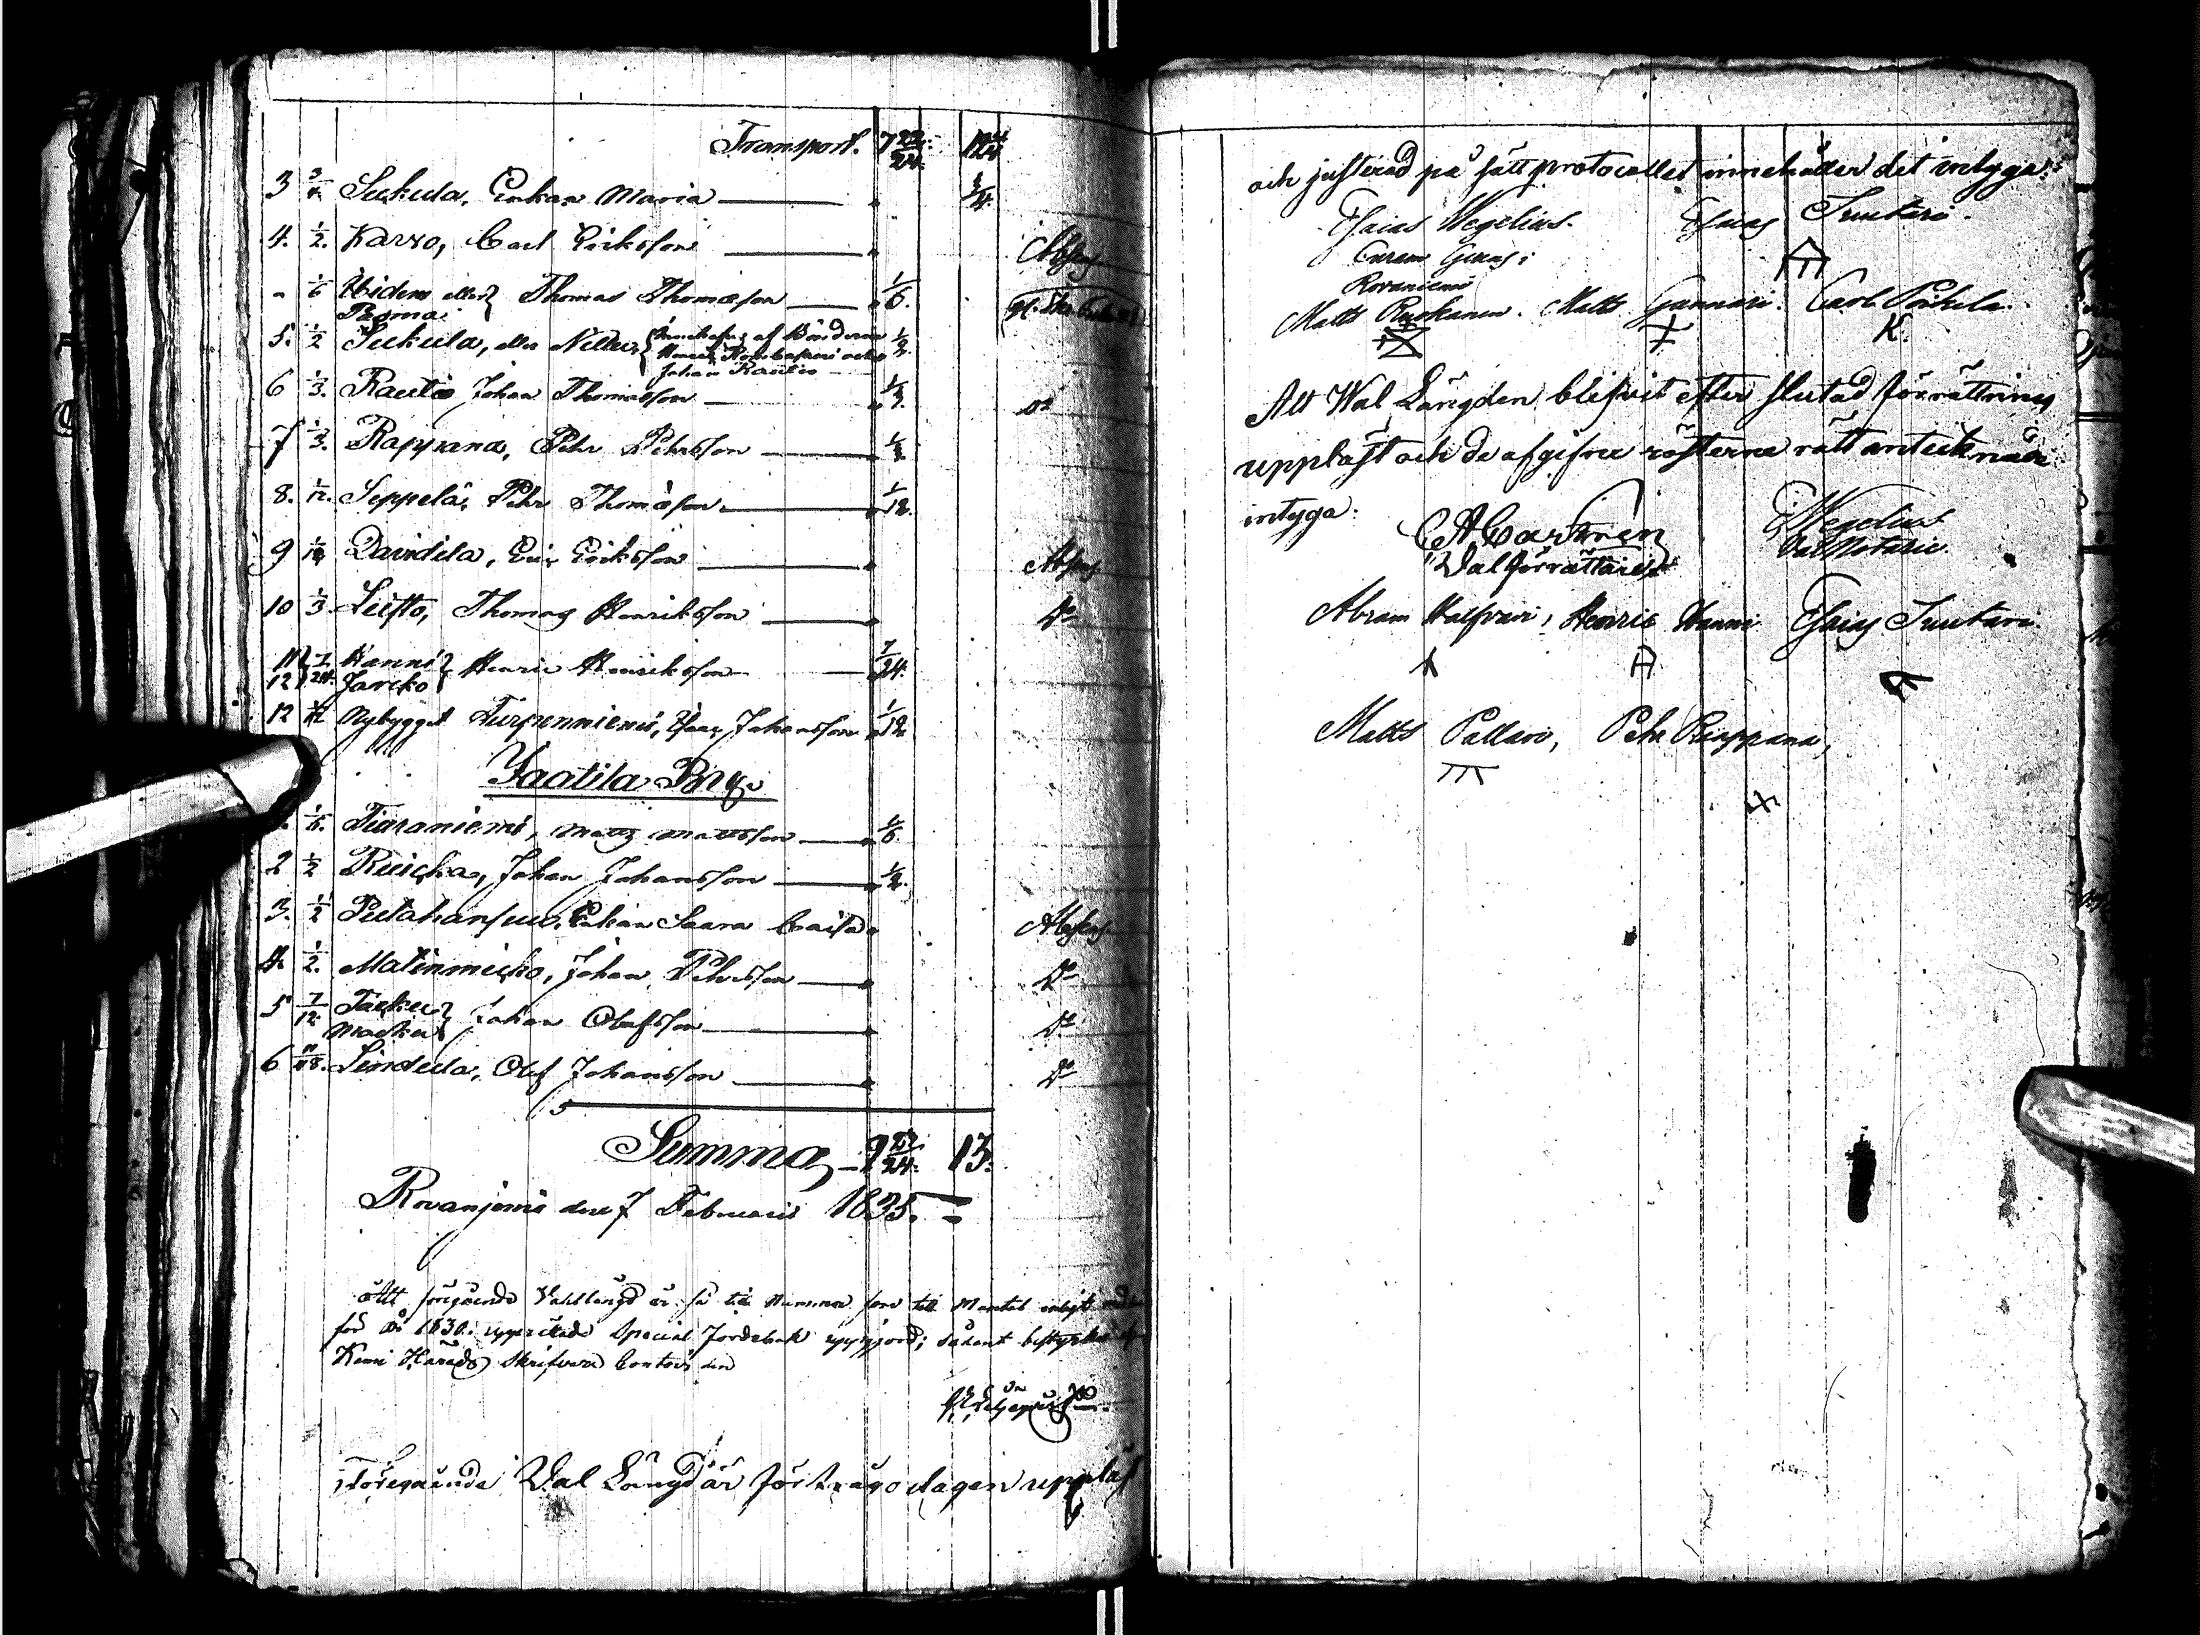 Transport. 7 22/24. 12 4/24
3 3/4. Sukula, Enkan Maria — " 3/4.
4. 1/2. Karvo, Carl Eriksson — " Absens
" 1/6 Widem eller Pagma } Thomas Thomasson — 1/6.
5. 1/2 Sukula, eller Nilku, { Innehafves af Bönderne
Johan Rautio 1/2.
6 1/3. Rautio Johan Thomasson — 1/3. Do
7 1/3. Rappana, Pehr Pehrsson — 1/3.
8. 1/12. Seppelä, Pehr Thomasson — 1/12.
9 Davidila, Eric Eriksson — " Absens
10 1/3 Leisto, Thomas Henriksson — " Do
11 12 } 7/24. Hanni Jarcko } Henric Henriksson — 7/24.
12 1/12 Nybygget Turpenniemi, Isaac Johansson 1/12
Yaatila By.
1/6. Tiaraniemi, Matts Mattsson — 1/6.
2 1/2 Ruicka, Johan Johansson — 1/2.
3. 1/2 Putahansuu, Enkan Saara Caisa " Absens
4. 1/2. Matinmicko, Johan Pehrsson — " Do
5 7/12. Tacku Macku } Johan Olofsson — " Do
6 Sindula, Olof Johansson — " Do
Summa — 9 22/24. 13.
Rovanjemi den 7 Februarii 1835.
Att föregående Vahllängd är så till Nummer som till Mantal enligt
för år 1830 upprättade Special Jordebok uppgjord; sådant bestyrkes
Kemi Härads Skrifvare Contoir den
Föregående Val Längd är för trägo dagen uppläst
och justerad på sätt protocollet innehåller det intyga:
Esaias Wegelius. Esaias Suutari.
Curam Gerens i
Rovaniemi
Matts Ruokanen. Matts Gannari. Carl Poikela.
K.
Att Wal Längden blifvit efter slutad förrättning
uppläst och de afgifne rösterne rätt antecknade
intyga:
C A Castren EWegelius
Valförrättare Val Notarie.
Abram Halfvari, Henric Hanni Esaias Suutari
Matts Pallari, Pehr Rappana,